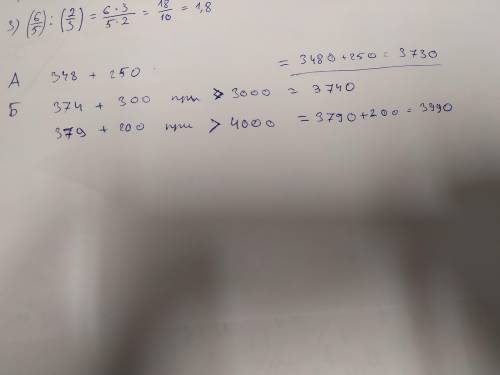 3) (6/5) : (2/3) = 6·3/5·2 = 18/10 = 1,8
А 348 + 250 = 3480 + 250 = 3730
Б 374 + 300 при > 3000 = 3740
379 + 200 при > 4000 = 3790 + 200 = 3990